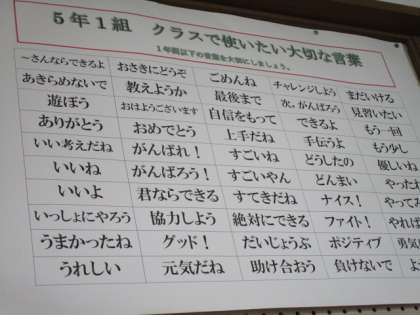 5年1組 クラスで使いたい大切な言葉
1年間以下の言葉を大切にしましょう。
～さんならできるよ おさきにどうぞ ごめんね チャレンジしよう まだいける
あきらめないで 教えようか 最後まで 次、がんばろう 見習いたい
遊ぼう おはようございます 自信をもって できるよ もう一回
ありがとう おめでとう 上手だね 手伝うよ もう少し
いい考えだね がんばれ! すごいね どうしたの 優しいね
いいね がんばろう! すごいやん どんまい やった
いいよ 君ならできる すてきだね ナイス! やってみ
いっしょにやろう 協力しよう 絶対にできる ファイト! やれば
うまかったね グッド! だいじょうぶ ポジティブ 勇気
うれしい 元気だね 助け合おう 負けないで よ